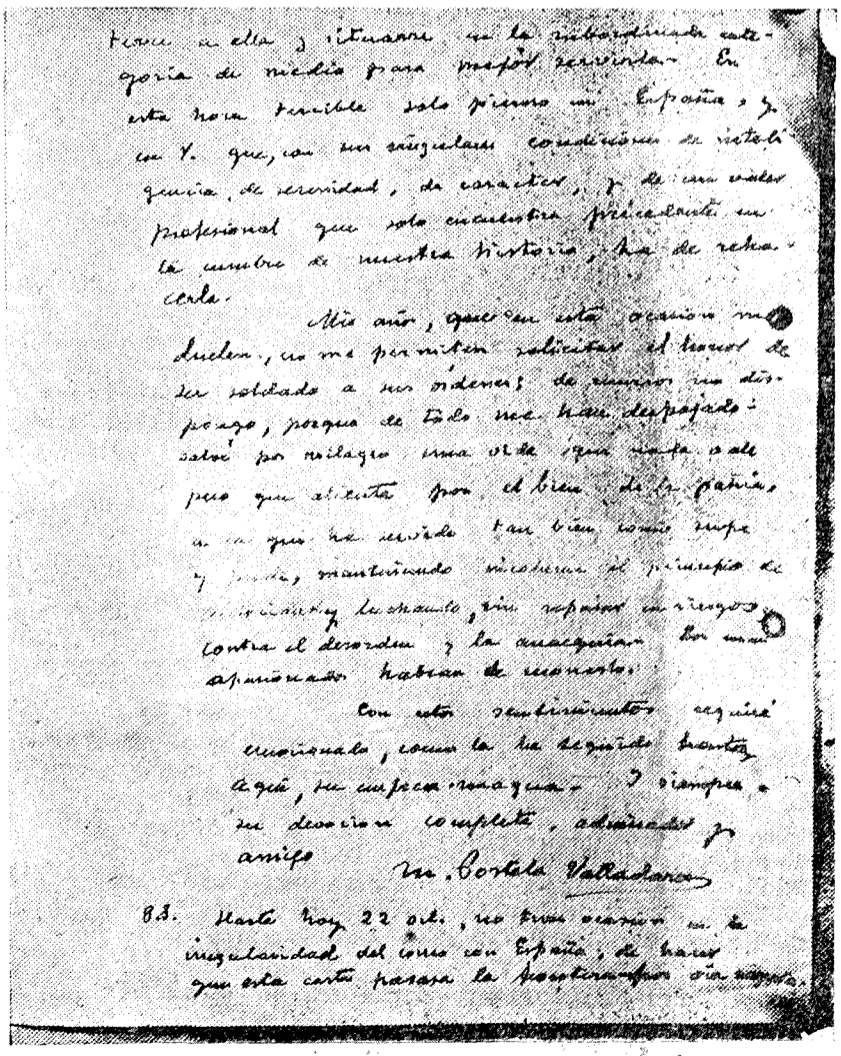 terne a ella y situarse en la subordinada cate-
goría de medio para mejor servirla. En
esta hora terrible solo pienso en España, y
en V. que, con sus singulares condiciones de inteli
gencia, de serenidad, de carácter, y de un valor
profesional que solo encuentra precedente en
la cumbre de nuestra historia, ha de reha-
cerla.
Mis años, que en esta ocasion me
duelen, no me permiten solicitar el honor de
ser soldado a sus órdenes; de dis-
pongo, porque de todo me han despojado:
salvé por milagro una vida que nada vale
pero que alienta por el bien de la patria,
a la que he servido tan bien como supe
y pude, manteniendo el principio de
y luchando, sin reparar en riesgos,
contra el desorden y la anarquía.
apasionados habian de
Con estos sentimientos seguiré
emocionado, como la he seguido hasta
aquí, su empresa magna. Y siempre
su devocion completa, admirador y
amigo
M. Portela Valladares
Hasta hoy 22 oct., no tuve ocasion en la
irregularidad del correo con España, de hacer
que esta carta pasara la frontera por via